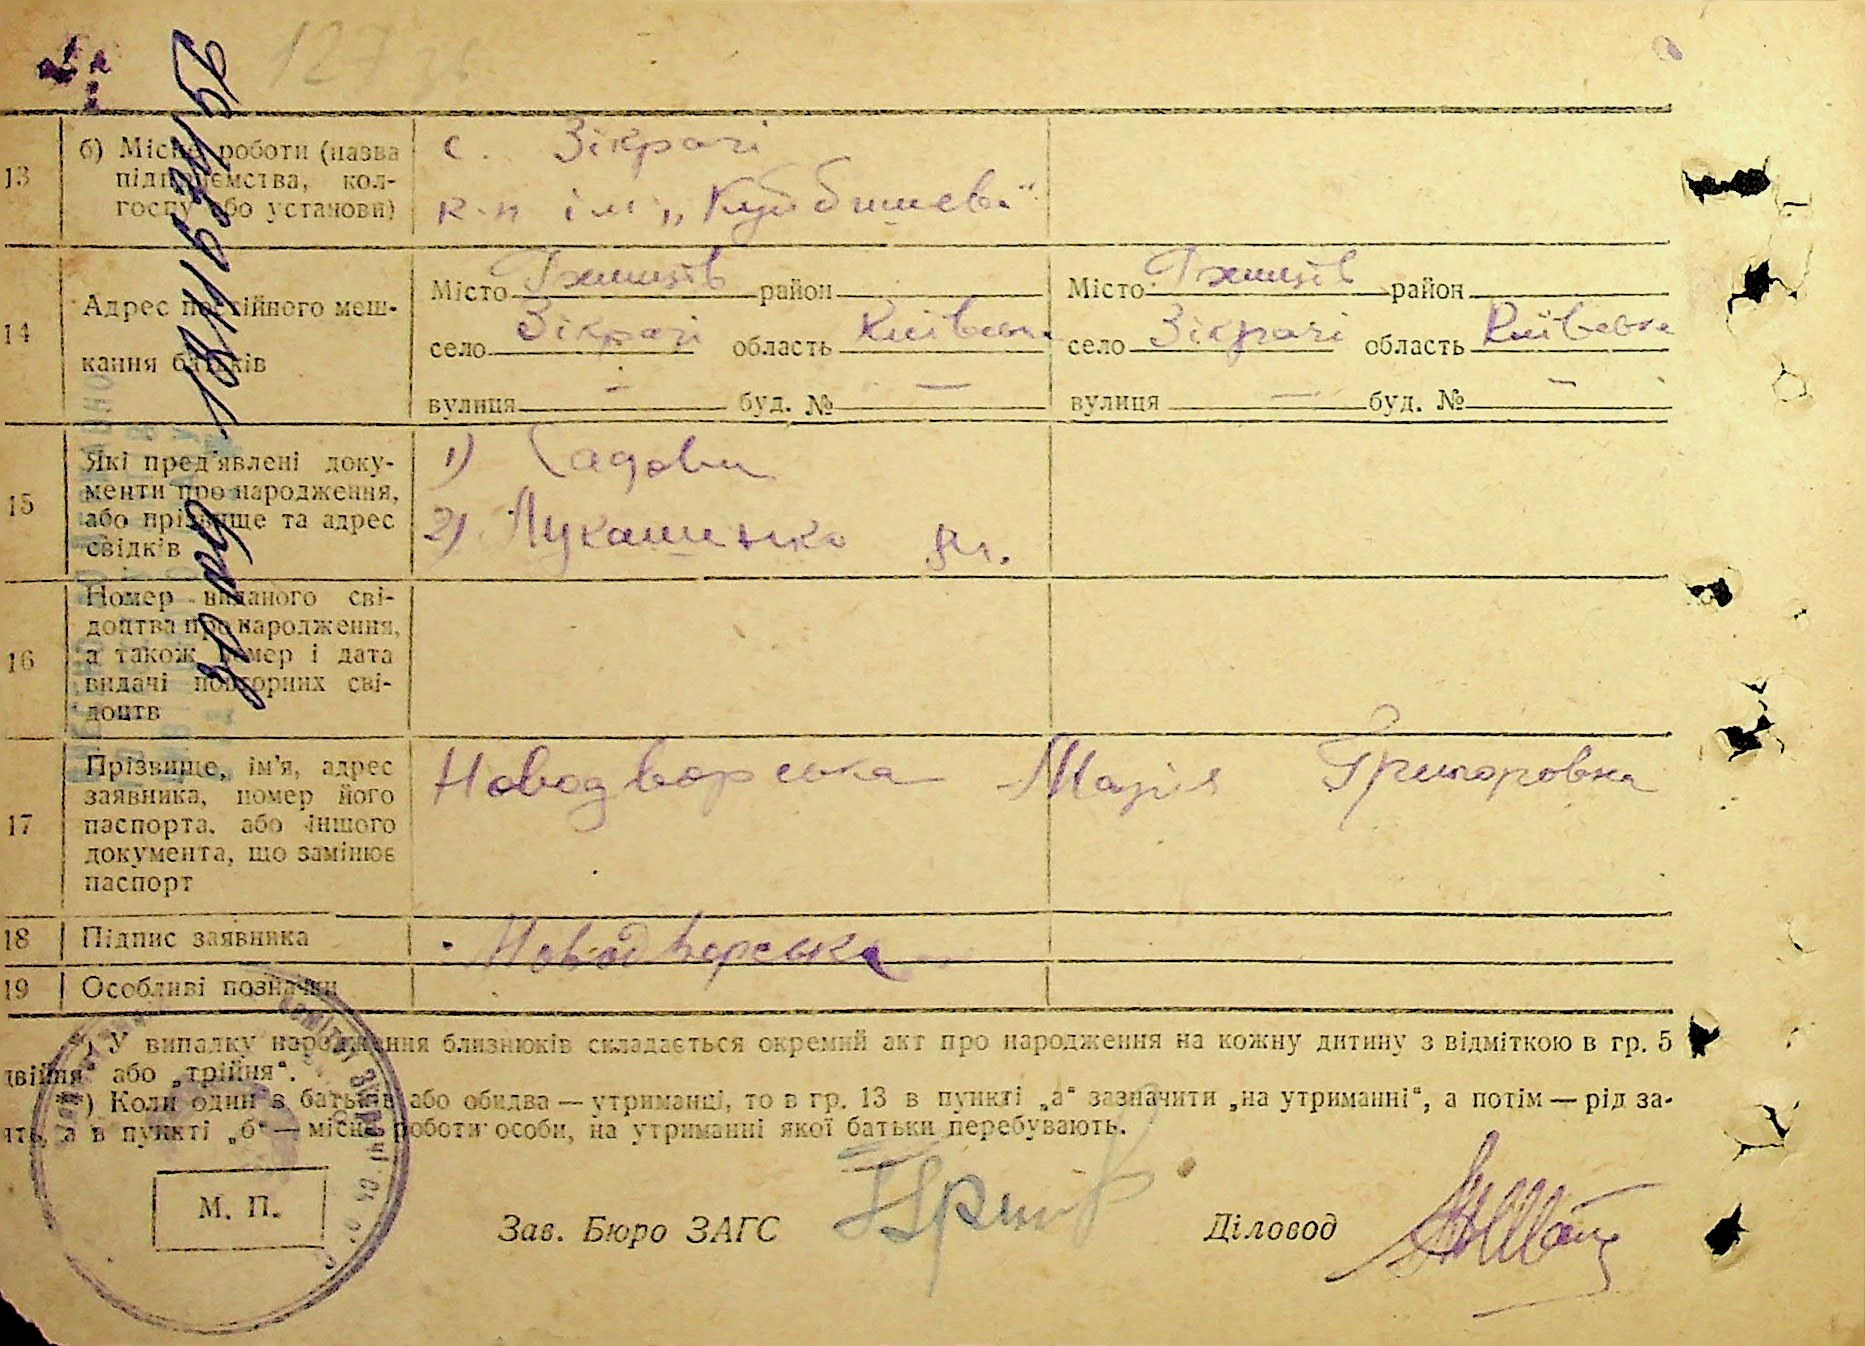 127 зв.
13 б) Місце роботи (назва підприємства, колгоспу або установи)
с. Зікрачі
к-п ім. „Куйбишева“
14 Адрес постійного мешкання батьків
Місто Ржищів район
село Зікрачі область Київська
вулиця — буд. № —
Місто Ржищів район
село Зікрачі область Київська
вулиця — буд. № —
15 Які пред'явлені документи про народження, або прізвище та адрес свідків
1) Садови
2) Лукашенко
16 Номер виданого свідоцтва про народження, а також номер і дата видачі повторних свідоцтв
17 Прізвище, ім'я, адрес заявника, номер його паспорта, або іншого документа, що замінює паспорт
Новодворська Марія Григоровна
18 Підпис заявника
Новодворська
19 Особливі позначки
*) У випадку народження близнюків складається окремий акт про народження на кожну дитину з відміткою в гр. 5
двійня“ або „трійня“.
**) Коли один з батьків або обидва — утриманці, то в гр. 13 в пункті „а“ зазначити „на утриманні“, а потім — рід за-
ять, а в пункті „б“ — місце роботи особи, на утриманні якої батьки перебувають.
М. П.
Зав. Бюро ЗАГС
Діловод